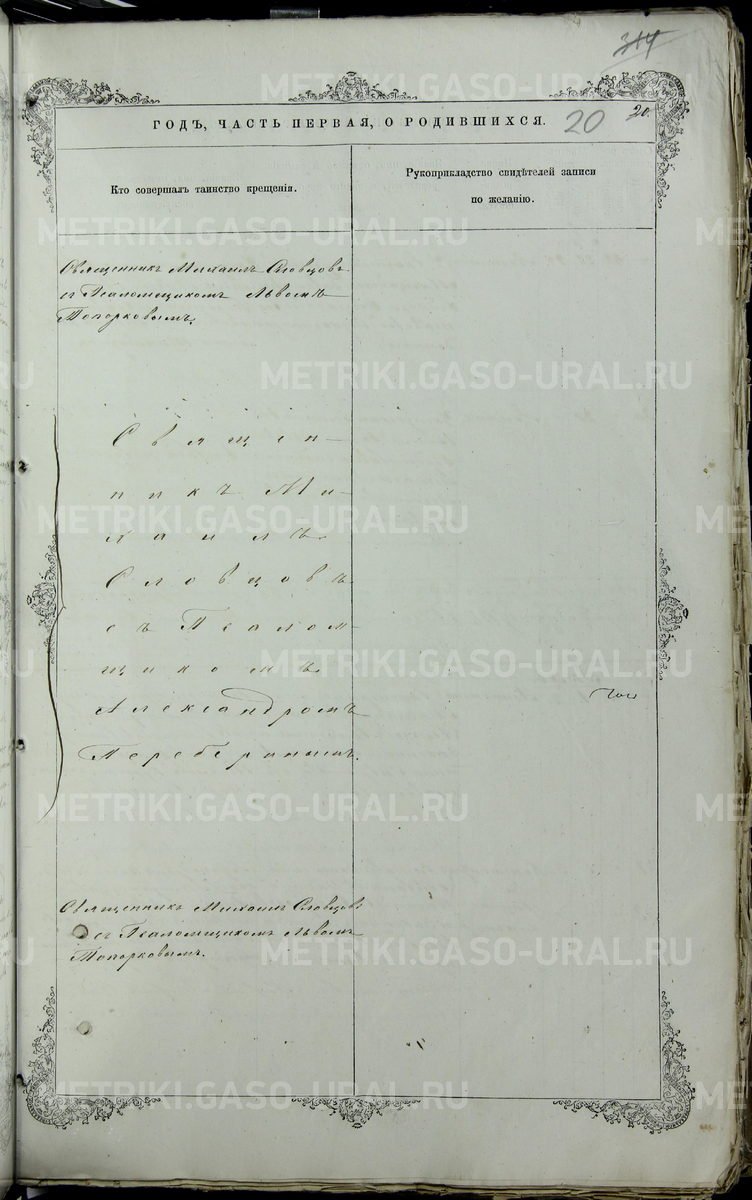 314
20
20.
ГОДЪ, ЧАСТЬ ПЕРВАЯ, О РОДИВШИХСЯ.
Кто совершалъ таинство крещенія.
Рукоприкладство свидѣтелей записи
по желанію.
Священникъ Михаилъ Словцовъ
съ Псаломщикомъ Львомъ
Топорковымъ.
Священ-
никъ Ми-
хаилъ
Словцовъ
съ Псалом-
щикомъ
Александромъ
Священникъ Михаилъ Словцовъ
съ Псаломщикомъ Львомъ
Топорковымъ.
METRIKI.GASO-URAL.RU